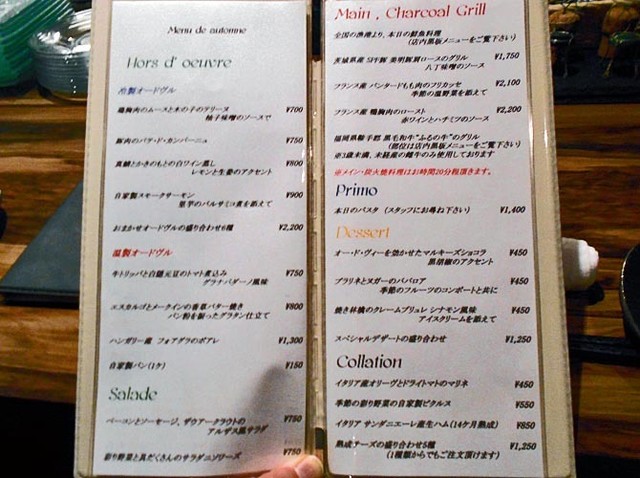 Menu de automne
Hors d' oeuvre
冷製オードヴル
鶏胸肉のムースと木の子のテリーヌ ¥700
柚子味噌のソースで
豚肉のパテ・ド・カンパーニュ ¥750
真鯛とかきのもとの白ワイン蒸し ¥800
レモンと生姜のアクセント
自家製スモークサーモン ¥900
里芋のバルサミコ煮を添えて
おまかせオードヴルの盛り合わせ6種 ¥2,200
温製オードヴル
牛トリッパと白隠元豆のトマト煮込み ¥750
グラナパダーノ風味
エスカルゴとメークインの香草バター焼き ¥800
パン粉を振ったグラタン仕立て
ハンガリー産 フォアグラのポアレ ¥1,300
自家製パン(1ケ) ¥150
Salade
ベーコンとソーセージ、ザウアークラウトの ¥750
アルザス風サラダ
彩り野菜と具だくさんのサラダニソワーズ ¥750
Main , Charcoal Grill
全国の漁港より、本日の鮮魚料理
(店内黒板メニューをご覧下さい)
茨城県産 弓午豚 美明豚肩ロースのグリル ¥1,750
八丁味噌のソース
フランス産 パンタードもも肉のフリカッセ ¥2,100
季節の温野菜を添えて
フランス産 鴨胸肉のロースト ¥2,200
赤ワインとハチミツのソース
福岡県鞍手郡 黒毛和牛“ふるの牛”のグリル
(部位は店内黒板メニューをご覧下さい)
※3歳未満、未経産の雌牛のみ使用しております
※メイン・炭火焼料理はお時間20分程頂きます。
Primo
本日のパスタ (スタッフにお尋ね下さい) ¥1,400
Dessert
オー・ド・ヴィーを効かせたマルキーズショコラ ¥450
黒胡椒のアクセント
プラリネとヌガーのババロア ¥450
季節のフルーツのコンポートと共に
焼き林檎のクレームブリュレ シナモン風味 ¥450
アイスクリームを添えて
スペシャルデザートの盛り合わせ ¥1,250
Collation
イタリア産オリーヴとドライトマトのマリネ ¥450
季節の彩り野菜の自家製ピクルス ¥550
イタリア サンダニエーレ産生ハム(14ケ月熟成) ¥850
熟成チーズの盛り合わせ5種 ¥1,250
(1種類からでもご注文頂けます)